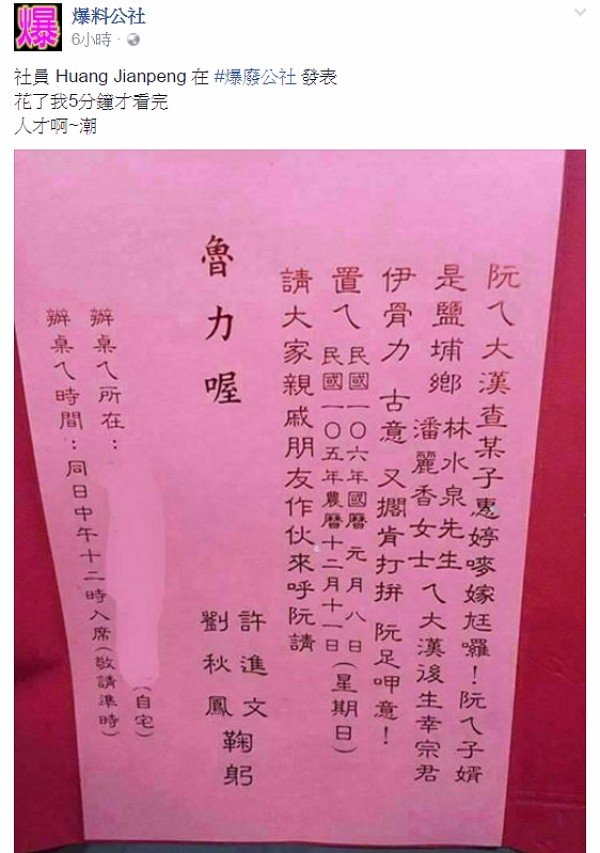 爆
爆料公社
6小時 ·
社員 Huang Jianpeng 在 #爆廢公社 發表
花了我5分鐘才看完
人才啊~潮
阮ㄟ大漢查某子惠婷嘜嫁尪囉！阮ㄟ子婿
是鹽埔鄉 林水泉先生 潘麗香女士 ㄟ大漢後生幸宗君
伊骨力 古意 又擱肯打拚 阮足呷意！
置ㄟ 民國一〇六年國曆 元月八日 民國一〇五年農曆十二月十一日 (星期日)
請大家親戚朋友作伙來呼阮請
魯力喔
許進文
劉秋鳳
鞠躬
辦桌ㄟ所在： (自宅)
辦桌ㄟ時間：同日中午十二時入席(敬請準時)